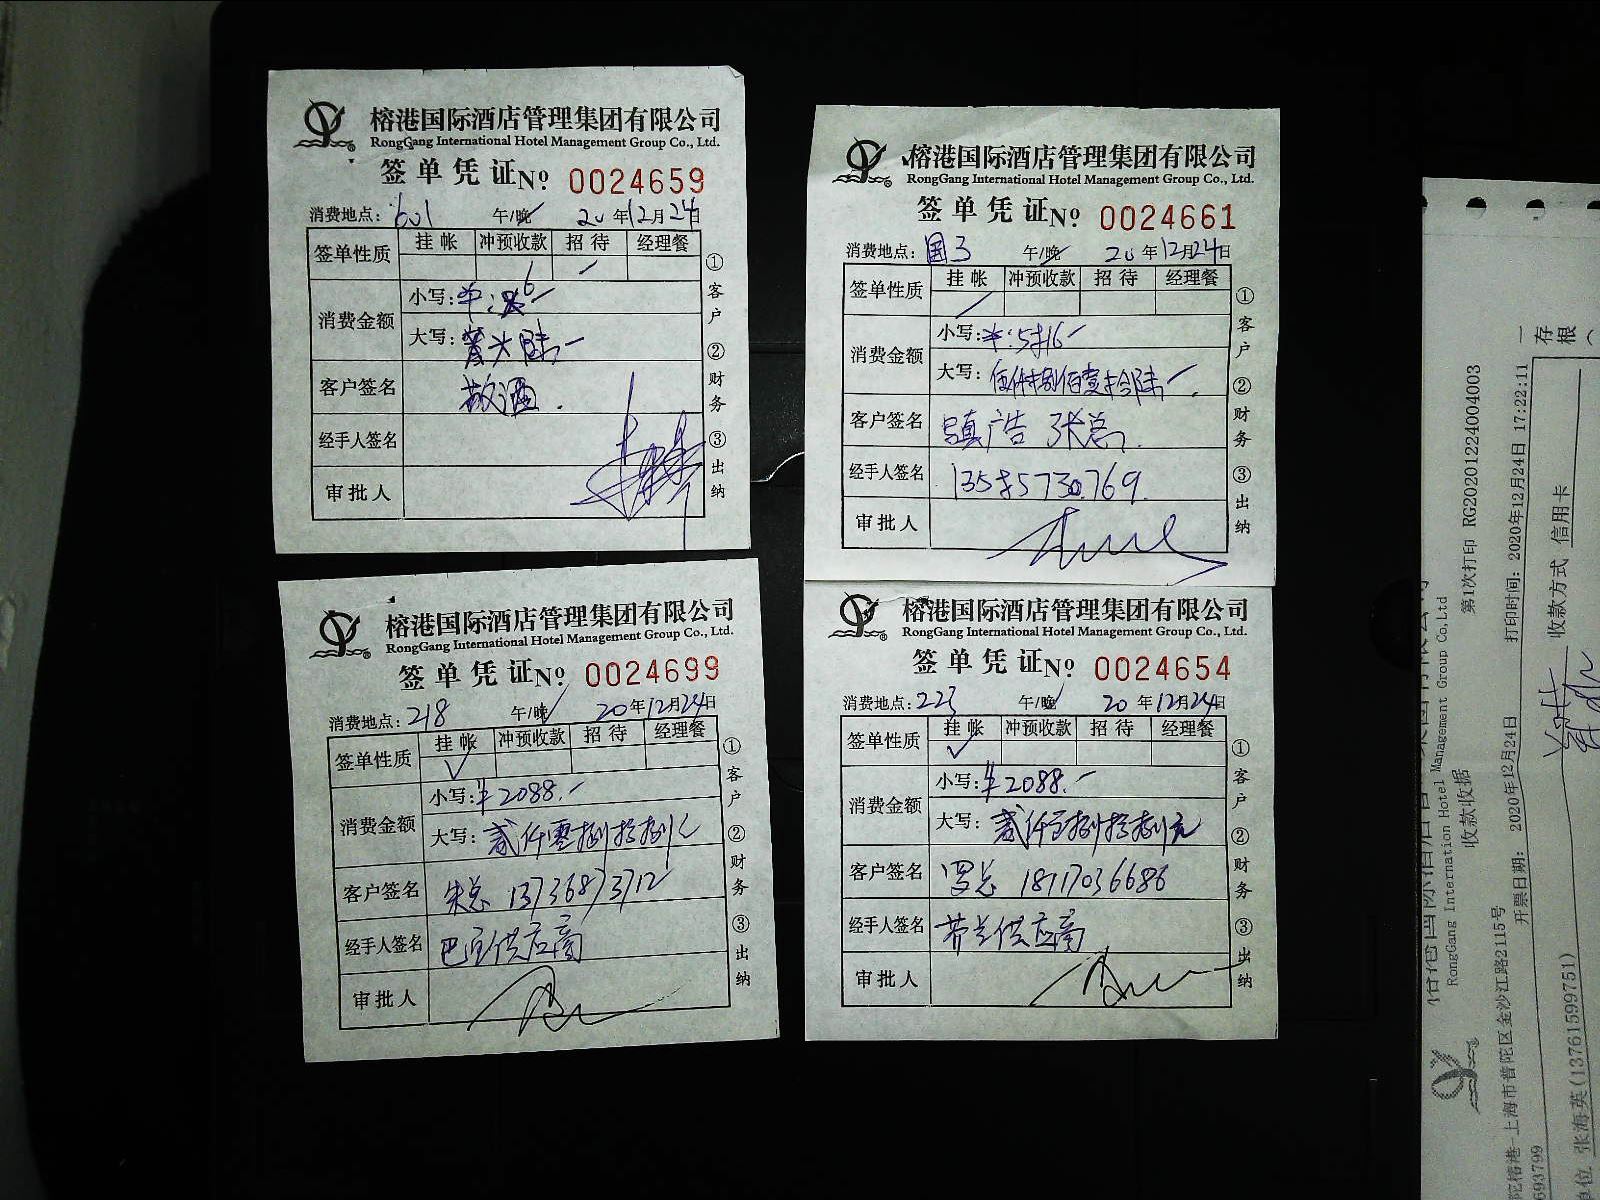 榕港国际酒店管理集团有限公司
RongGang International Hotel Management Group Co., Ltd.
签单凭证 Nº 0024659
消费地点: 601 午/晚 20年12月24日
签单性质 挂帐 冲预收款 招待 经理餐
消费金额
小写:
大写:
客户签名 敬酒.
经手人签名
审批人
①客户 ②财务 ③出纳
榕港国际酒店管理集团有限公司
RongGang International Hotel Management Group Co., Ltd.
签单凭证 Nº 0024661
消费地点: 国3 午/晚 20年12月24日
签单性质 挂帐 冲预收款 招待 经理餐
消费金额
小写: ¥:5816
大写: 伍仟捌佰壹拾陆
客户签名 镇广告 张总
经手人签名 13585730769.
审批人
①客户 ②财务 ③出纳
榕港国际酒店管理集团有限公司
RongGang International Hotel Management Group Co., Ltd.
签单凭证 Nº 0024699
消费地点: 218 午/晚 20年12月24日
签单性质 挂帐 冲预收款 招待 经理餐
消费金额
小写: ¥2088.-
大写: 贰仟零捌拾捌
客户签名 朱总 13736873712
经手人签名 供应商
审批人
①客户 ②财务 ③出纳
榕港国际酒店管理集团有限公司
RongGang International Hotel Management Group Co., Ltd.
签单凭证 Nº 0024654
消费地点: 223 午/晚 20年12月24日
签单性质 挂帐 冲预收款 招待 经理餐
消费金额
小写: ¥2088.-
大写: 贰仟零捌拾捌元
客户签名 罗总 18117036686
经手人签名 芬兰供应商
审批人
①客户 ②财务 ③出纳
RongGang Internation Hotel Management Group Co,Ltd
收款收据 第1次打印 RG20201224004003
陀榕港-上海市普陀区金沙江路2115号
693799 开票日期: 2020年12月24日 打印时间: 2020年12月24日 17:22:11
单位 张海英(13761599751) 收款方式 信用卡
一存根(